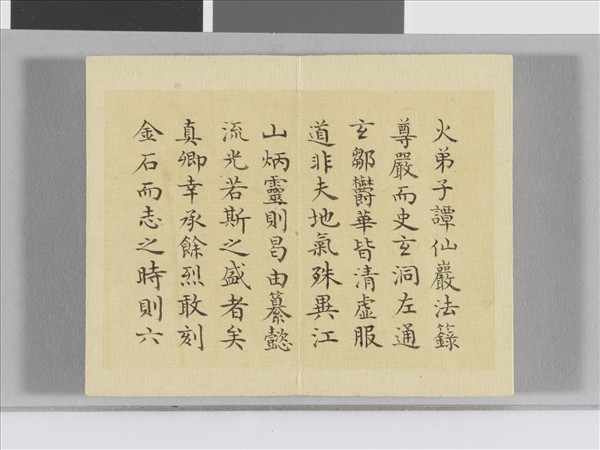 火弟子譚仙巖法籙
尊嚴而史玄洞左通
玄鄒欝華皆清虚服
道非夫地氣殊異江
山炳靈則曷由纂懿
流光若斯之盛者矣
真卿幸承餘烈敢刻
金石而志之時則六